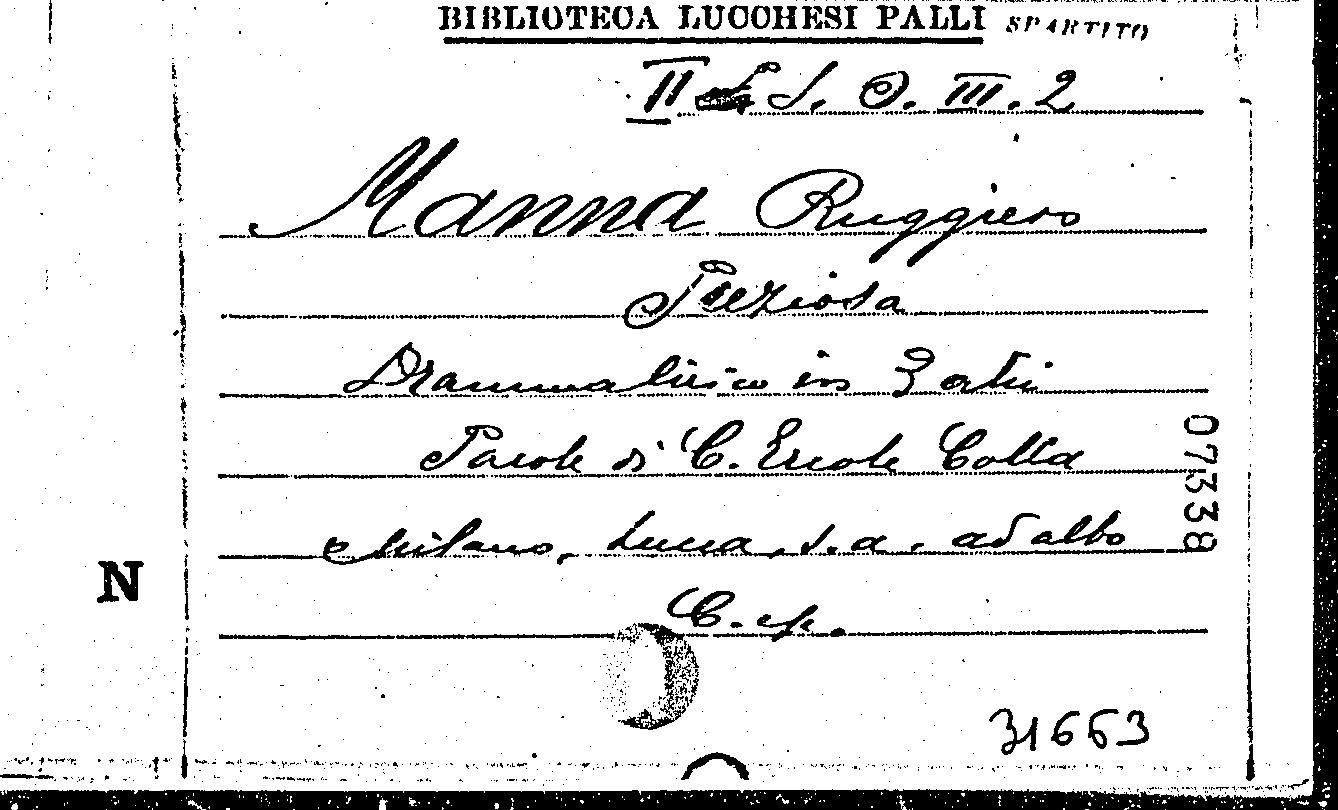 BIBLIOTECA LUCCHESI PALLI SPARTITO
II S. O. III. 2
Manna Ruggiero
Preziosa
Dramma lirico in 3 atti
Parole di C. Ercole Colla
Milano, Lucca, s.a. ad albo
C. sp.
07338
N
31663